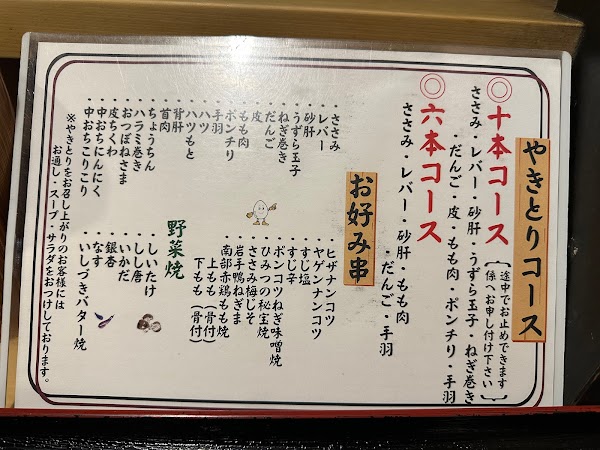 やきとりコース
◎十本コース
〔途中でお止めできます
係へお申し付け下さい〕
ささみ・レバー・砂肝・うずら玉子・ねぎ巻き
・だんご・皮・もも肉・ボンチリ・手羽
◎六本コース
ささみ・レバー・砂肝・もも肉
・だんご・手羽
お好み串
・ささみ
・レバー
・砂肝
・うずら玉子
・ねぎ巻き
・だんご
・皮
・もも肉
・ボンチリ
・手羽
・ハツ
・ハツもと
・背肝
・首肉
・ちょうちん
・ハラミ巻き
・おつぼねさま
・皮ちくわ
・中おちにんにく
・中おちこりこり
・ヒザナンコツ
・ヤゲンナンコツ
・すじ辛
・すじ塩
・ボンコツねぎ味噌焼
・ひみつの秘宝焼
・ささみ梅じそ
・岩手鴨ねぎま
・南部赤鶏もも焼
・上もも(骨付)
・下もも(骨付)
野菜焼
・しいたけ
・しし唐
・いかだ
・銀杏
・なす
・いしづきバター焼
※やきとりをお召し上がりのお客様には
お通し・スープ・サラダをおつけしております。